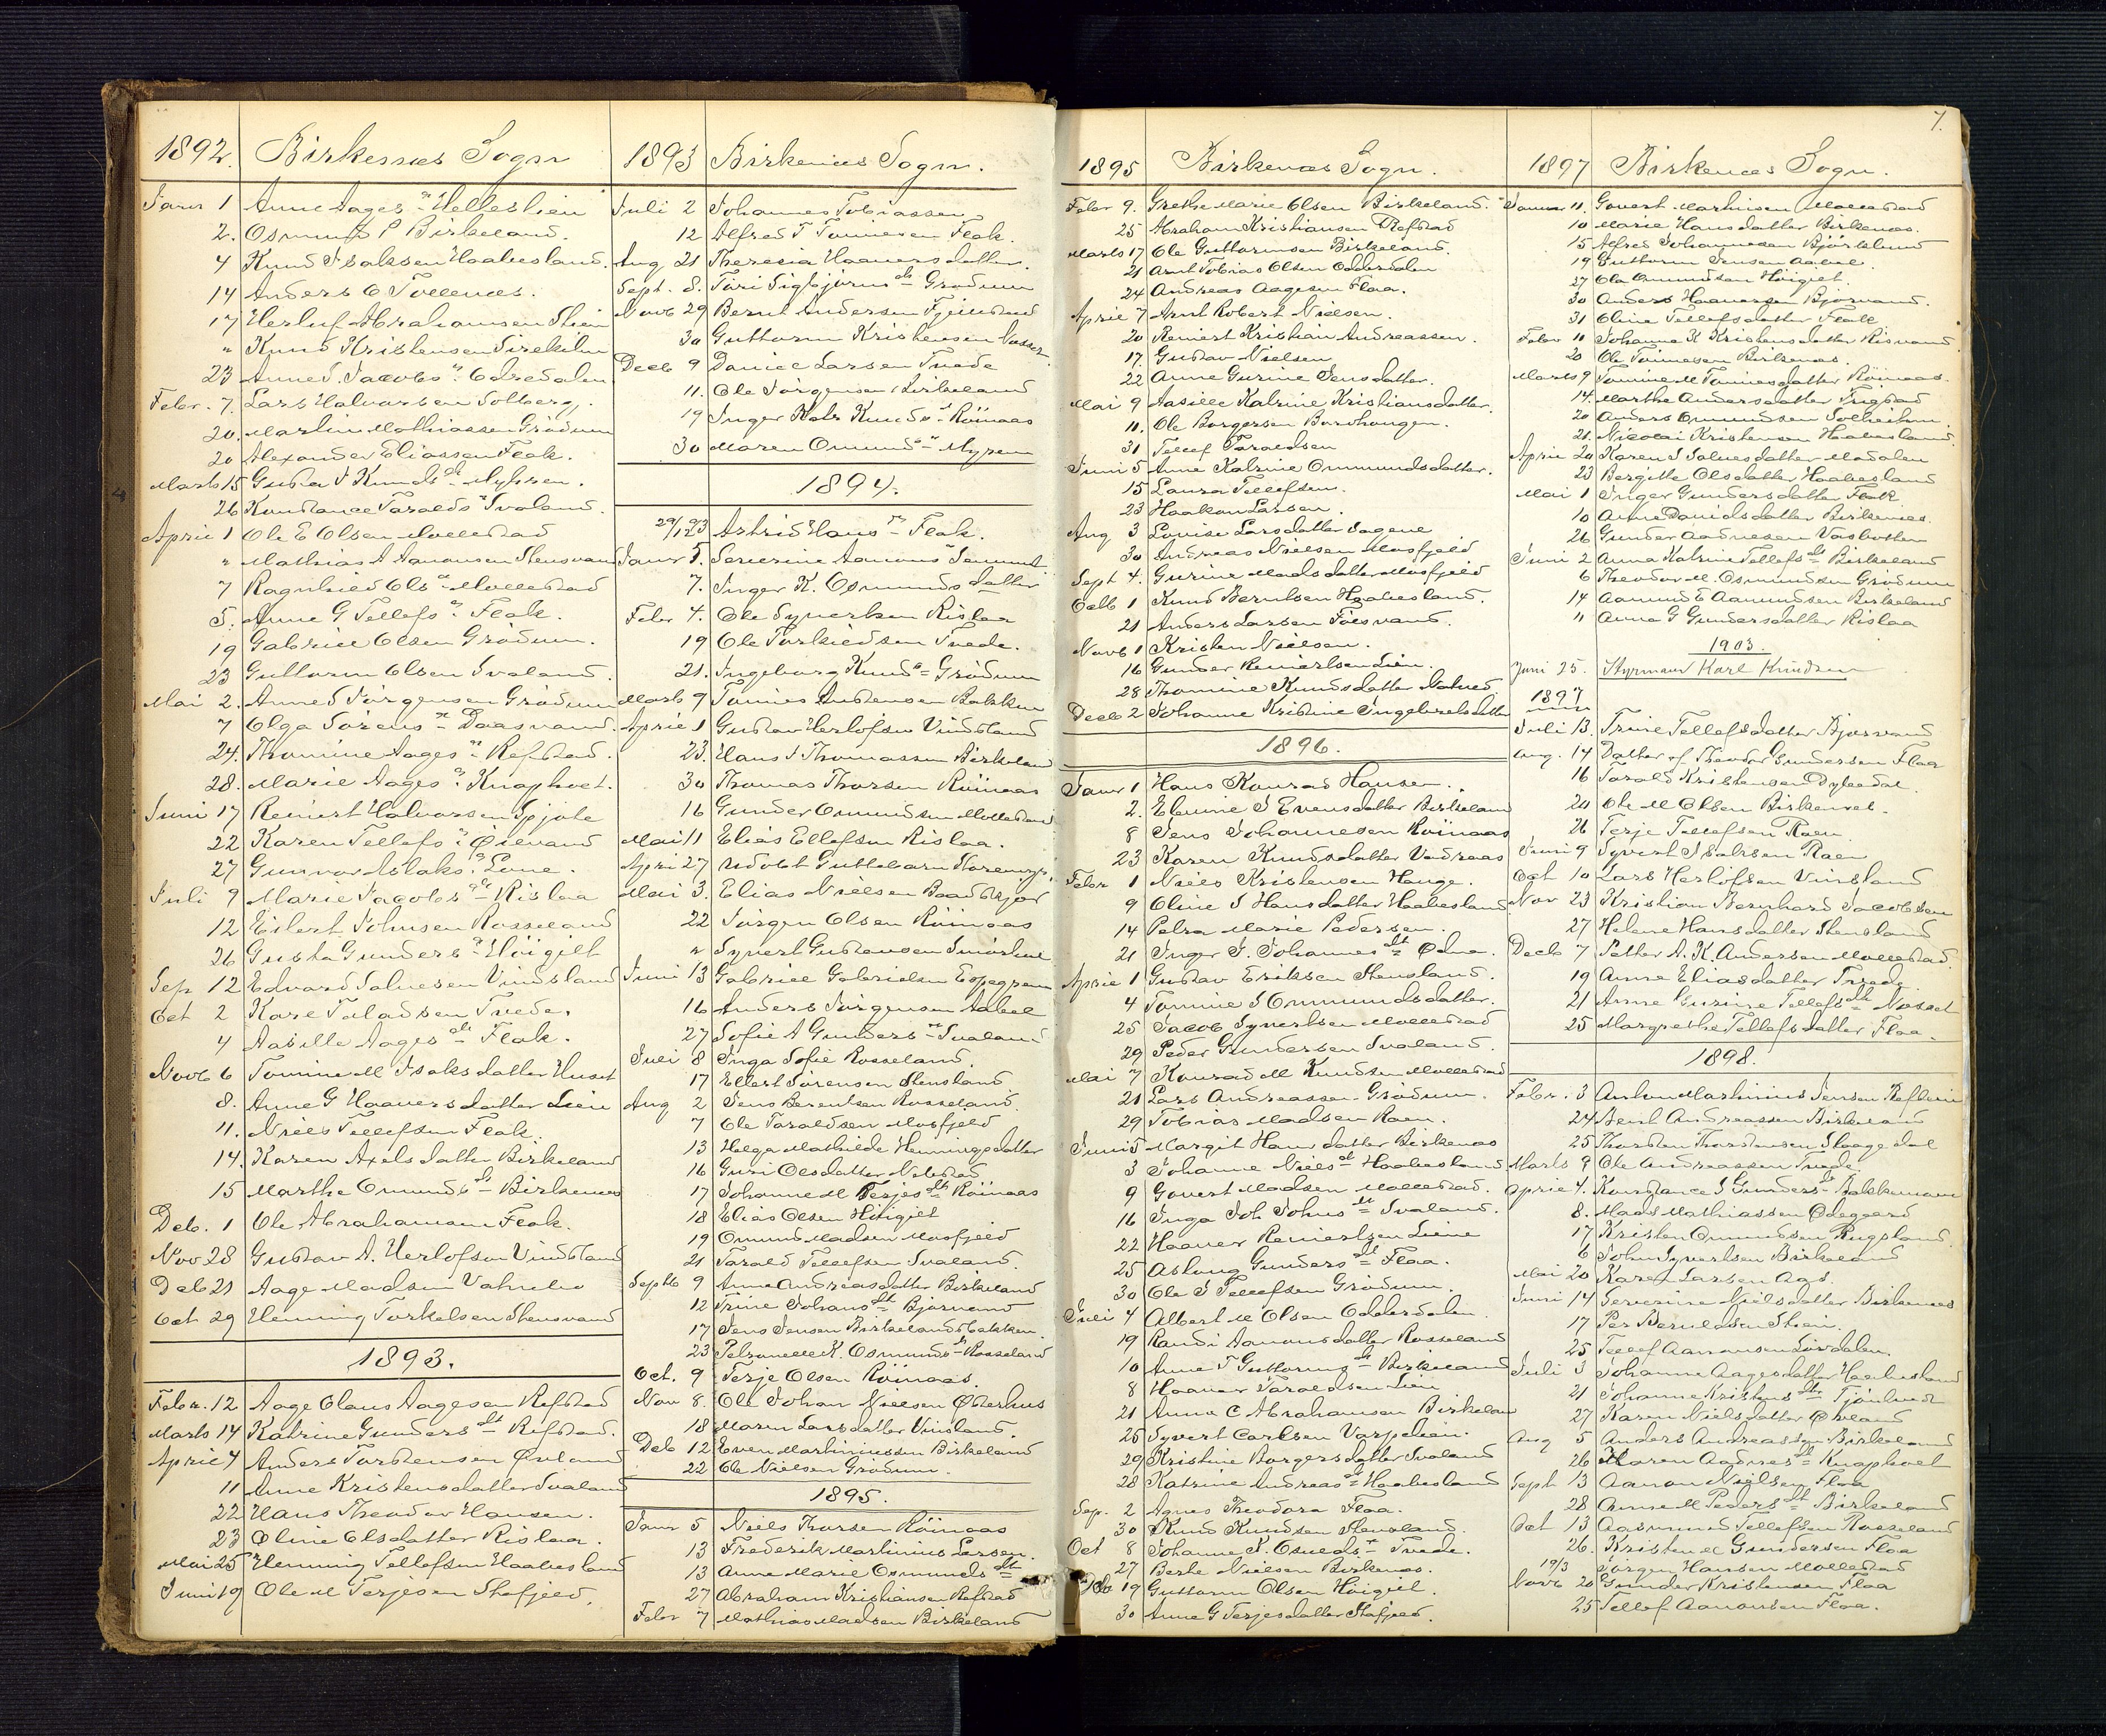 1892. Birkenæs Sogn
Janr 1 Anne Aages " Helleslien
2. Osmund P Birkeland.
4 Knud Isaksen Haabesland.
14 Anders O Tollenæs.
17 Herluf Abrahamsen Thien
" Knud Kristensen
23 Anne T. Jacobs " Odredalen
Febr. 7. Lars Halvorsen Solberg,
20. Martin Mathiassen Grødum
20 Alexander Eliassen Flak.
Marts 15 Gusta I Knuds dt Myhren.
26 Konstance Taralds " Svaland.
April 1 Ole E Olsen Mollestad
" Mathias A Aanonsen Stensvand
7 Ragnhild Ols " Mollestad
5. Anne G Tellefs " Flak.
19 Gabriel Olsen Grødum.
23 Guttorm Olsen Svaland.
Mai 2. Anne S Jørgensen Grødum
7 Olga Sørens " Daasvand.
24. Thomine Aages " Refstad.
28. Marie Aages " Knaphoet.
Juni 17 Reinert Halvorsen Spjote
22 Karen Tellefs " Øievand
27 Gunvor Aslaks " Lone.
Juli 9 Marie Jacobs " Rislaa
12 Eilert Johnsen Rosseland
26 Gusta Gunders " Høigilt
Sep 12 Edvard Salvesen Vindsland
Oct 2 Karl Taladsen Tvede.
4 Aasille Aages dt Flak.
Novb 6 Tomine M Isaksdatter Huset
8. Anne G Haaversdatter Lien
11. Niels Tellefsen Flak.
14. Karen Axelsdatter Birkeland
15 Marthe Omunds dt Birkenæs
Deb. 1 Ole Abrahamsen Flak.
Nov 28 Gustav A. Herlofson Vindsland
Deb 21 Aage Madsen Vatnelio
Oct 29 Henning Torkelsen Stensvand
1893.
Febr. 12 Aage Olaus Aagesen Refstad
Marts 14 Katrine Gunders dt Refstad.
April 4 Anders Torstensen Øvland
11 Anne Kristensdatter Svaland
22 Hans Theodor Hansen.
23 Oline Olsdatter Rislaa.
Mai 25 Henning Tellefsen Haabesland
Juni 19 Ole M Terjesen Stafjeld.
1893 Birkenæs Sogn.
Juli 2 Johannes Tobiassen
12 Alfred T Tønnesen Flak.
Aug 21 Theresia Haaversdatter.
Sept. 8. Turi Sigbjørns dt Grødum
Novb 29 Bernt Andersen Fjeldstad
30 Guttorm Kristensen Vasset
Decb 9 Daniel Larsen Tvede
11. Ole Jørgensen Birkeland
19 Inger Katr Knuds dt Røinaas
30 Maren Omunds " Myren
1894.
29/12 93 Astrid Hans " Flak.
Janr 5. Severine Aanons
7. Inger K. Osmundsdatter
Febr 4. Ole Syvertsen Rislaa
19 Ole Torkildsen Tvede.
21. Ingeborg Knuds " Grødum
Marts 9 Tønnes Andersen Bakken
April 1 Gustav Herlofsen Vindsland
23. Hans I Thomassen Birkeland
30 Thomas Thorsen Røinaas
16 Gunder Omundsen Mollestad
Mai 11 Elias Ellefsen Rislaa.
April 27 Udøbt Guttebarn
Mai 3. Elias Nielsen
22 Jørgen Olsen Røinaas
" Syvert Gustavsen
Juni 13 Gabriel Gabrielsen Espegren
16 Anders Jørgensen Aabel
27 Sofie A Gunders " Svaland
Juli 8 Inga Sofie Rosseland
17 Ellert Sørensen Stensland
Aug 2 Jens Berentsen Rosseland.
7 Ole Taraldsen Mosfjeld
13 Helga Mathilde Henningsdatter
16 Guri Olsdatter
17 Johanne M Terjes dt Røinaas
18 Elias Olsen Høigilt
19 Omund Madsen Mosfjeld
21 Tarald Tellefsen Svaland.
Septb 9 Anne Andreasdatter Birkeland
12 Trine Johans dt Bjorvand
17 Jens Jensen Birkelandsbakken.
23 Petronelle K. Osmunds " Rosseland
Oct. 9 Terje Olsen Røinaas.
Nov 8. Ole Johan Nielsen Østerhus
18 Maren Larsdatter Vinsland.
Deb 12 Even Martiniussen Birkeland
22 Ole Nielsen Grødum.
1895.
Janr 5 Niels Thorsen Røinaas
13 Frederik Martinius Larsen.
13 Anne Marie Osmunds dt
27 Abraham Kristiansen Refstad
Febr 7 Mathias Madsen Birkeland
7.
1895 Birkenæs Sogn.
Febr 9. Grethe Marie Olsen Birkeland.
25 Abraham Kristiansen Refstad
Marts 17 Ole Guttormsen Birkeland.
21 Arnt Tobias Olsen Odderdalen
24 Andreas Aagesen Flaa.
April 7 Arnt Robert Nielsen.
20 Reinert Kristian Andreassen.
17. Gustav Nielsen
22 Anne Gurine Jensdatter.
Mai 9 Aasille Katrine Kristiansdatter.
11. Ole Borgersen Bordhaugen.
31 Tellef Taraldsen
Juni 5 Anne Katrine Ommundsdatter.
15 Laura Tellefsen.
23 Haakon Larsen.
Aug 3 Lovise Larsdatter Sagene
30 Andreas Nielsen Mosfjeld
Sept 4. Gurine Madsdatter Mosfjeld
Octb 1 Knud Berntsen Haabesland.
21 Anders Larsen
Novb 1 Kristen Nielsen.
16 Gunder Reinertsen Lien.
28 Thomine Knudsdatter
Decb 2 Johanne Kristine Ingebretsdatter
1896.
Janr 1 Hans Konrad Hansen.
2. Elevine S Evensdatter Birkeland
8 Jens Johannesen Røinaas
23 Karen Knudsdatter Vadraas
Febr 1 Niels Kristensen Hauge.
9 Oline S Hansdatter Haabesland
14 Petra Marie Pedersen.
21 Inger T. Johannes dt
April 1 Gustav Eriksen Stensland.
4 Tomine S Ommundsdatter.
25 Jacob Syvertsen Mollestad
29 Peder Gundersen Svaland.
Mai 7 Konrad M Knudsen Mollestad
21 Lars Andreassen Grødum.
29 Tobias Madsen Raen.
Juni 5 Margit Hansdatter Birkenæs
3 Johanne Niels dt Haabesland
9 Govert Madsen Mollestad.
16 Inga Joh Johns dt Svaland.
22 Haaver Reinertsen Liene
25 Aslaug Gunders dt Flaa.
30 Ole S Tellefsen Grødum.
Juli 4 Albert M Olsen Odderdalen
19 Randi Aanonsdatter Rosseland
10 Anne T Guttorms dt Birkeland
8 Haaver Taraldsen Lien
21 Anna C Abrahamsen Birkeland
25 Syvert Carlsen Varpelien.
29 Kristine Borgersdatter Svaland
28 Katrine Andreas dt Haabesland
Sep. 2 Agnes Theodora Flaa.
30 Knud Knudsen Stensland.
Oct 8 Johanne K. Osulds " Tvede.
27 Berte Nielsen Birkenæs.
Deb 19 Guttorm Olsen Høigilt.
30 Anne G Terjesdatter Stafjeld.
1897 Birkenæs Sogn.
Januar 11. Govert Martinsen Mollestad
10 Marie Hansdatter Birkenæs.
15 Alfred Johannesen Bjorklund
19 Guttorm Jensen Aabel
27 Ole Omundsen Høigilt.
30 Anders Haaversen Bjorvand.
31 Oline Tellefsdatter Flak
Febr 11 Johanne K Kristensdatter Risvand
20 Ole Tønnesen Birkenæs.
Marts 9 Tomine M Tønnesdatter Røinaas.
14. Marthe Andersdatter Frigstad
20 Anders Omundsen Solheihm.
21. Nicolai Kristensen Haabesland
April 20 Karen S Salvesdatter Mødalen
23 Bergitte Olsdatter Haabesland
Mai 1 Inger Gundersdatter Flak
10 Anne Davidsdatter Birkenæs.
26 Gunder Aadnesen Vasbotten
Juni 2 Anna Katrine Tellefs dt Birkeland
6 Theodor M. Osmundsen Grødum
14 Aamund E Aamundsen Birkeland
11 Anna G Gundersdatter Rislaa
1903.
Juni 25. Styrmann Karl Knudsen
1897
Juli 13. Trine Tellefsdatter Bjorvand
Aug. 14 Datter af Theodor Gundersen Flaa
16 Tarald Kristensen
20 Ole M Olsen Birkenæs.
26 Terje Tellefsen Raen
Juni 9 Syvert Isaksen Raen
Oct 10 Lars Herlofsen Vinsland
Nov 23 Kristian Bernhard Jacobsen
27 Helene Hansdatter Stensland
Decb 7 Petter A. K. Andersen Mollestad.
19 Anne Eliasdatter Tvede
21 Anne Gurine Tellefs dt Vasset
25 Margrethe Tellefsdatter Flaa.
1898.
Febr. 3 Anton Martinius Jensen
24 Berit Andreassen Birkeland
25 Thorsten Thorstensen
Marts 9 Ole Andreassen Tvede.
April 4. Konstance S Gunders dt Bakkemoen
8. Mads Mathiassen Ødegaard
17 Kristen Omundsen Rugsland.
6 John Syvertsen Birkeland
Mai 20 Karen Larsen Ags.
Juni 14 Severine Nielsdatter Birkenæs
17 Per Berulsen Thien.
25 Tellef Aanonsen
Juli 3 Johanne Aagesdatter Haabesland
21 Johanne Kristens dt
27 Karen Nielsdatter
Aug 5 Anders Andreassen Birkeland
26 Karen Aadnes dt Knaphoet
Sept 13 Aanon Nielsen Flaa
28 Anne M Peders dt Birkeland
Oct 13 Aasmund Tellefsen Rosseland
26. Kristen M Gundersen Flaa
19/3 Jørgen Hansen Mollestad
Novb 20 Gunder Kristensen Flaa
25 Tellef Aanonsen Flaa.